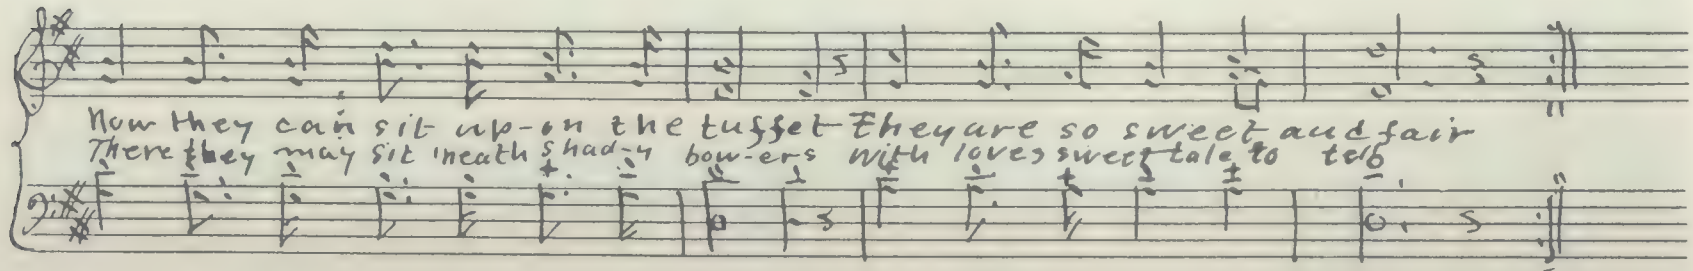 Now they can sit up-on the tuffet They are so sweet and fair
There they may sit 'neath shad-y bow-ers with loves sweet tale to tell